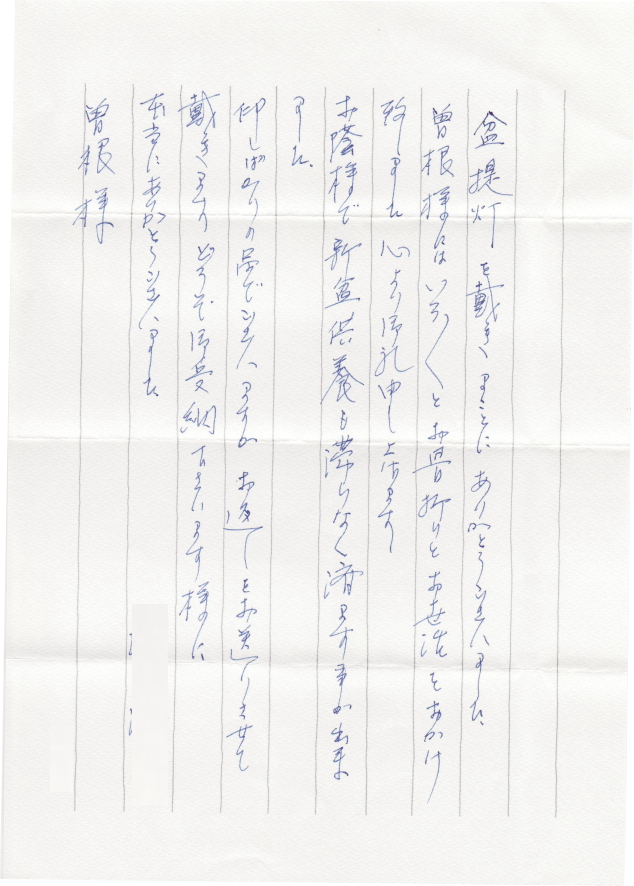 盆提灯を戴きまことにありがとうございました
曽根様にはいろ〱とお骨折りとお世話をおかけ
致しました 心より御礼申し上げます
お蔭様で新盆供養も滞りなく済ます事が出来
ました。
印しばかりの品でございますが お返しをお送りさせて
戴きます どうぞ御受納下さいます様に
本当にありがとうございました
曽根様